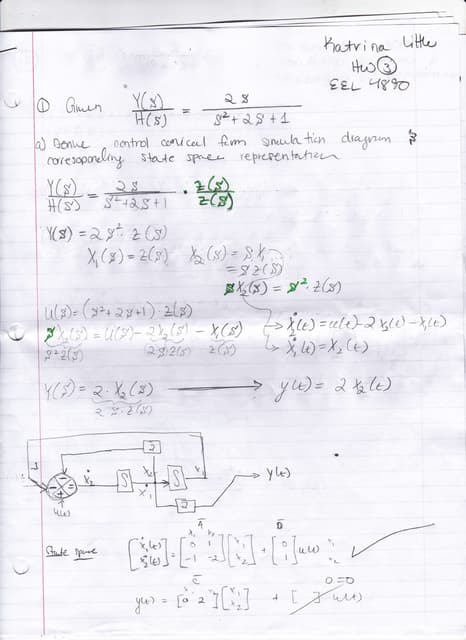 Katrina Little
HW ③
EEL 4890
① Given Y(s)/H(s) = 2s / s²+2s+1
a) Derive control conical form simulation diagram &
corresponding state space representation
Y(s)/H(s) = 2s / s²+2s+1 · Z(s)/Z(s)
Y(s) = 2s · Z(s)
X₁(s) = Z(s) X₂(s) = sX₁
= sZ(s)
sX₂(s) = s² · Z(s)
U(s) = (s²+2s+1) · Z(s)
sX₂(s) = U(s) - 2X₂(s) - X₁(s) → ẋ₂(t) = u(t) - 2x₂(t) - x₁(t)
s²Z(s) 2·s·Z(s) Z(s) → ẋ₁(t) = x₂(t)
Y(s) = 2·X₂(s) → y(t) = 2x₂(t)
2·s·Z(s)
2
ẋ₂ ∫ x₂ ẋ₁ ∫ x₁
2 → y(t)
u(t)
A B
State space [ẋ₁(t) ẋ₂(t)] = [0 1 -1 -2] [x₁ x₂] + [0 1] u(t)
C 0=0
y(t) = [0 2] [x₁ x₂] + [ ] u(t)